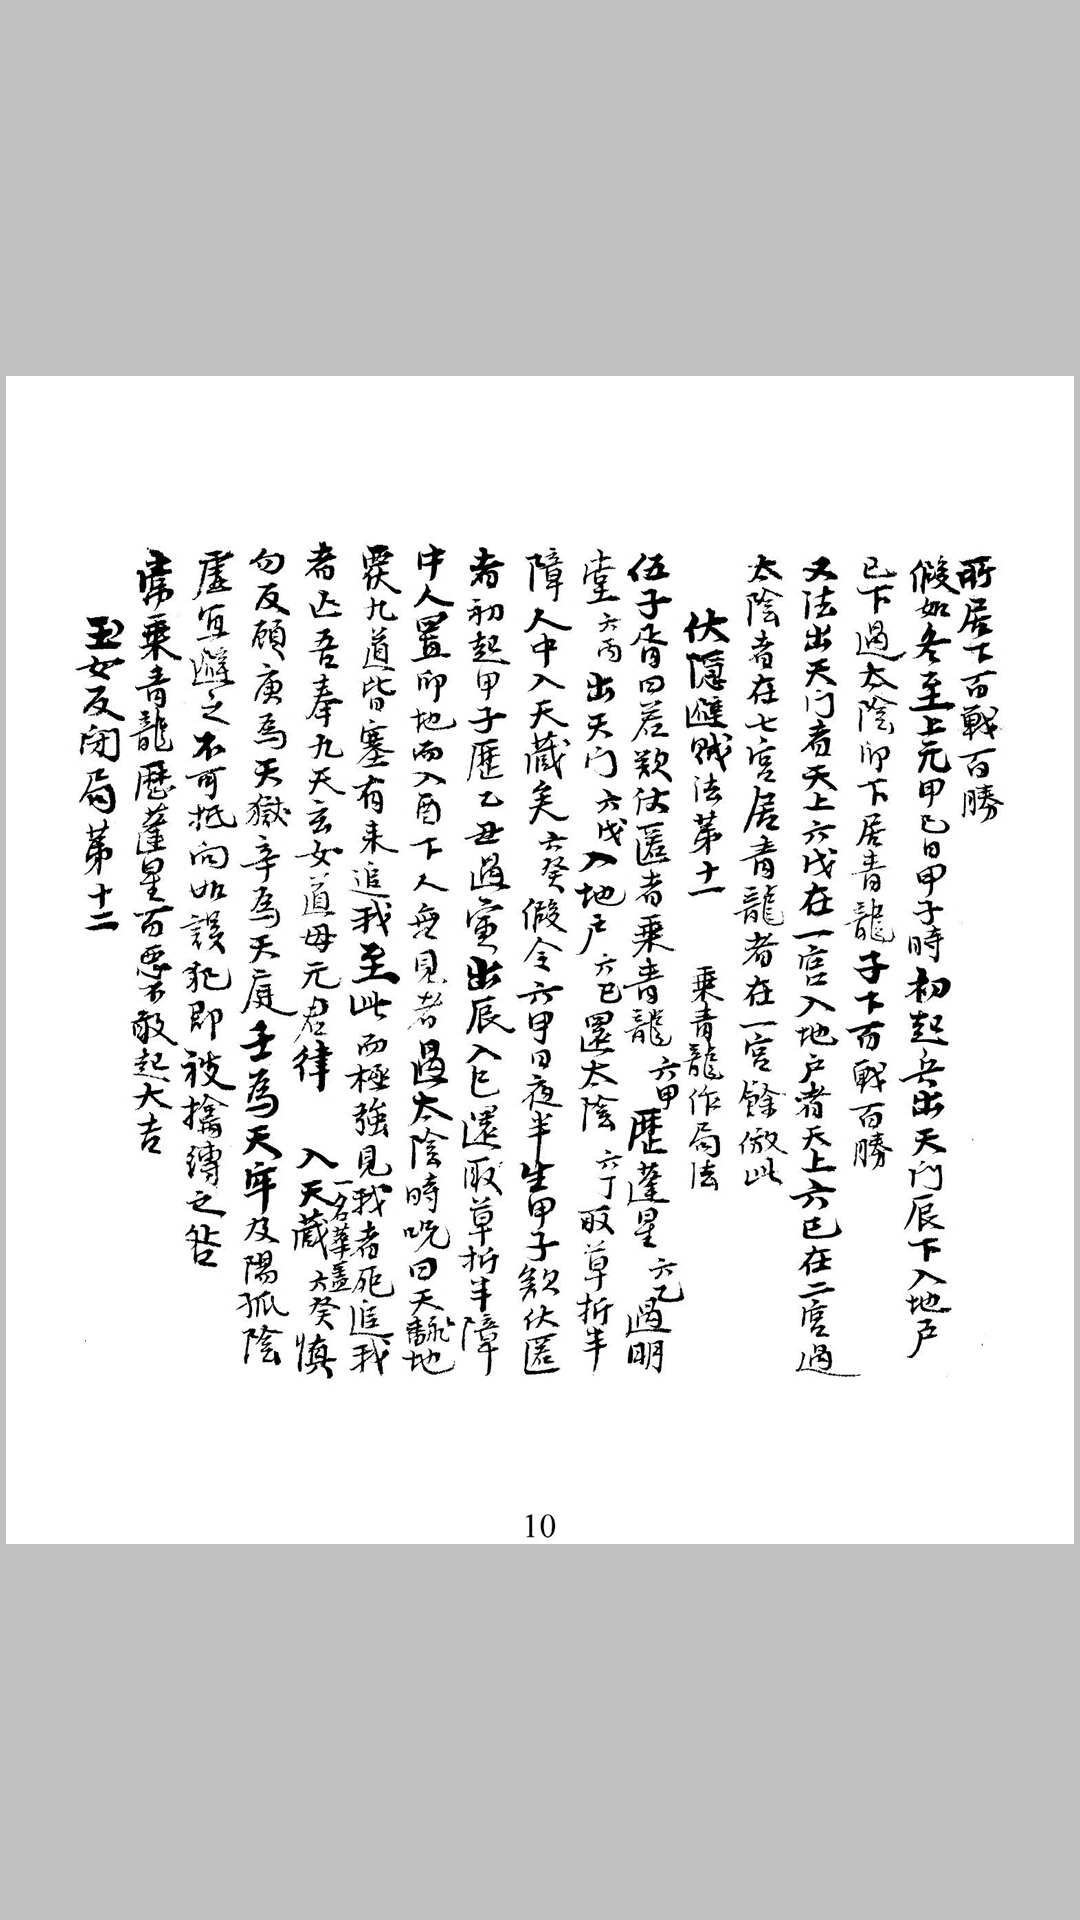 所居下百戰百勝
假如冬至上元甲己日甲子時初起兵出天门辰下入地戶
已下過太陰卯下居青龍子下百戰百勝
又法出天门者天上六戊在一宫入地户者天上六己在二宫過
太陰者在七宫居青龍者在一宫餘倣此
伏隱避賊法第十一 乘青龍作局法
伍子胥曰若欵伏匿者乘青龍六甲歷蓬星六乙過明
堂六丙出天门六戊入地户六己還太陰六丁取草折半
障人中入天藏矣六癸假令六甲日夜半生甲子欵伏匿
者初起甲子歷乙丑過寅出辰入巳還取草折半障
中人置卯地而入酉下人無見者過太陰時呪曰天翻地
覆九道皆塞有来追我至此而極強見我者死追我
者亡吾奉九天玄女道母元君律 入天藏一名華盖六癸慎
勿反顧庚為天獄辛為天庭壬為天牢及陽孤陰
虚宜避之不可抵向如誤犯即被擒縛之咎
常乘青龍歷蓬星百惡不敢起大吉
玉女反闭局第十二
10